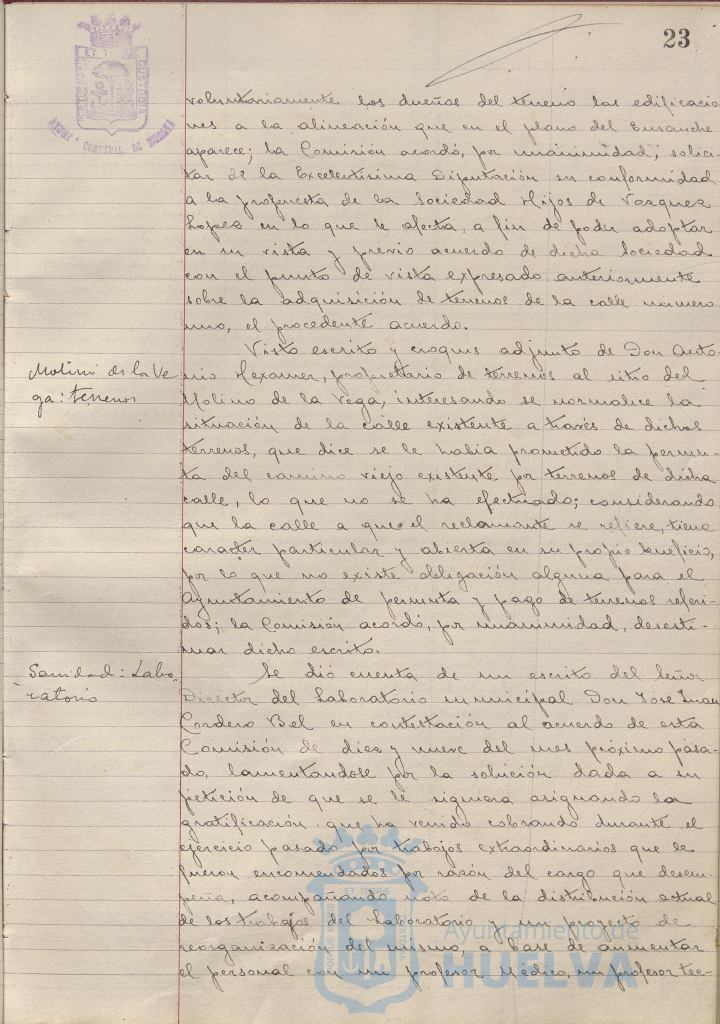 23
voluntariamente los dueños del terreno las edificacio-
nes a la alineación que en el plano del Ensanche
aparece; la Comisión acordó, por unanimidad, solici-
tar de la Excelentísima Diputación su conformidad
a la propuesta de la Sociedad Hijos de Vazquez
Lopez en lo que le afecta, a fin de poder adoptar
en su vista y previo acuerdo de dicha Sociedad
con el punto de vista expresado anteriormente
sobre la adquisición de terrenos de la calle numero
uno, el procedente acuerdo.
Molino de la Ve
ga: terrenos
Visto escrito y croquis adjunto de Don Anto-
nio Hexamer, propietario de terrenos al sitio del
Molino de la Vega, interesando se normalice la
situación de la calle existente a través de dichos
terrenos, que dice se le había prometido la permu-
ta del camino viejo existente por terrenos de dicha
calle, lo que no se ha efectuado; considerando
que la calle a que el reclamante se refiere, tiene
caracter particular y abierta en su propio beneficio,
por lo que no existe obligación alguna para el
Ayuntamiento de permuta y pago de terrenos referi-
dos; la Comisión acordó, por unanimidad, desesti-
mar dicho escrito.
Sanidad: Labo-
ratorio
Se dió cuenta de un escrito del Señor
Director del Laboratorio municipal Don José Juan
Cordero Bel en contestación al acuerdo de esta
Comisión de diez y nueve del mes próximo pasa-
do, lamentandose por la solución dada a su
petición de que se le siguiera asignando la
gratificación que ha venido cobrando durante el
ejercicio pasado por trabajos extraordinarios que le
fueron encomendados por razón del cargo que desem-
peña, acompañando nota de la distribución actual
de los trabajos del Laboratorio y un proyecto de
reorganización del mismo, a base de aumentar
el personal con un profesor Médico, un profesor tec-
Ayuntamiento de
HUELVA